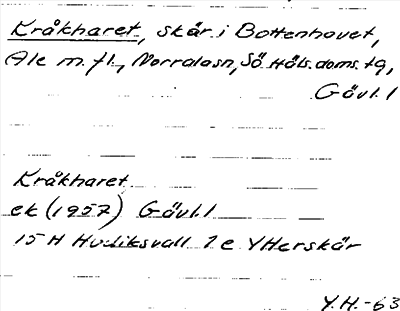 Kråkharet, skär i Bottenhavet,
Ale m. fl., Norralasn, Sö. Häls. doms. tg,
Gävl. l
Kråkharet
ek (1957) Gävl. l
15 H Hudiksvall 1 e Ytterskär
Y.H.-63